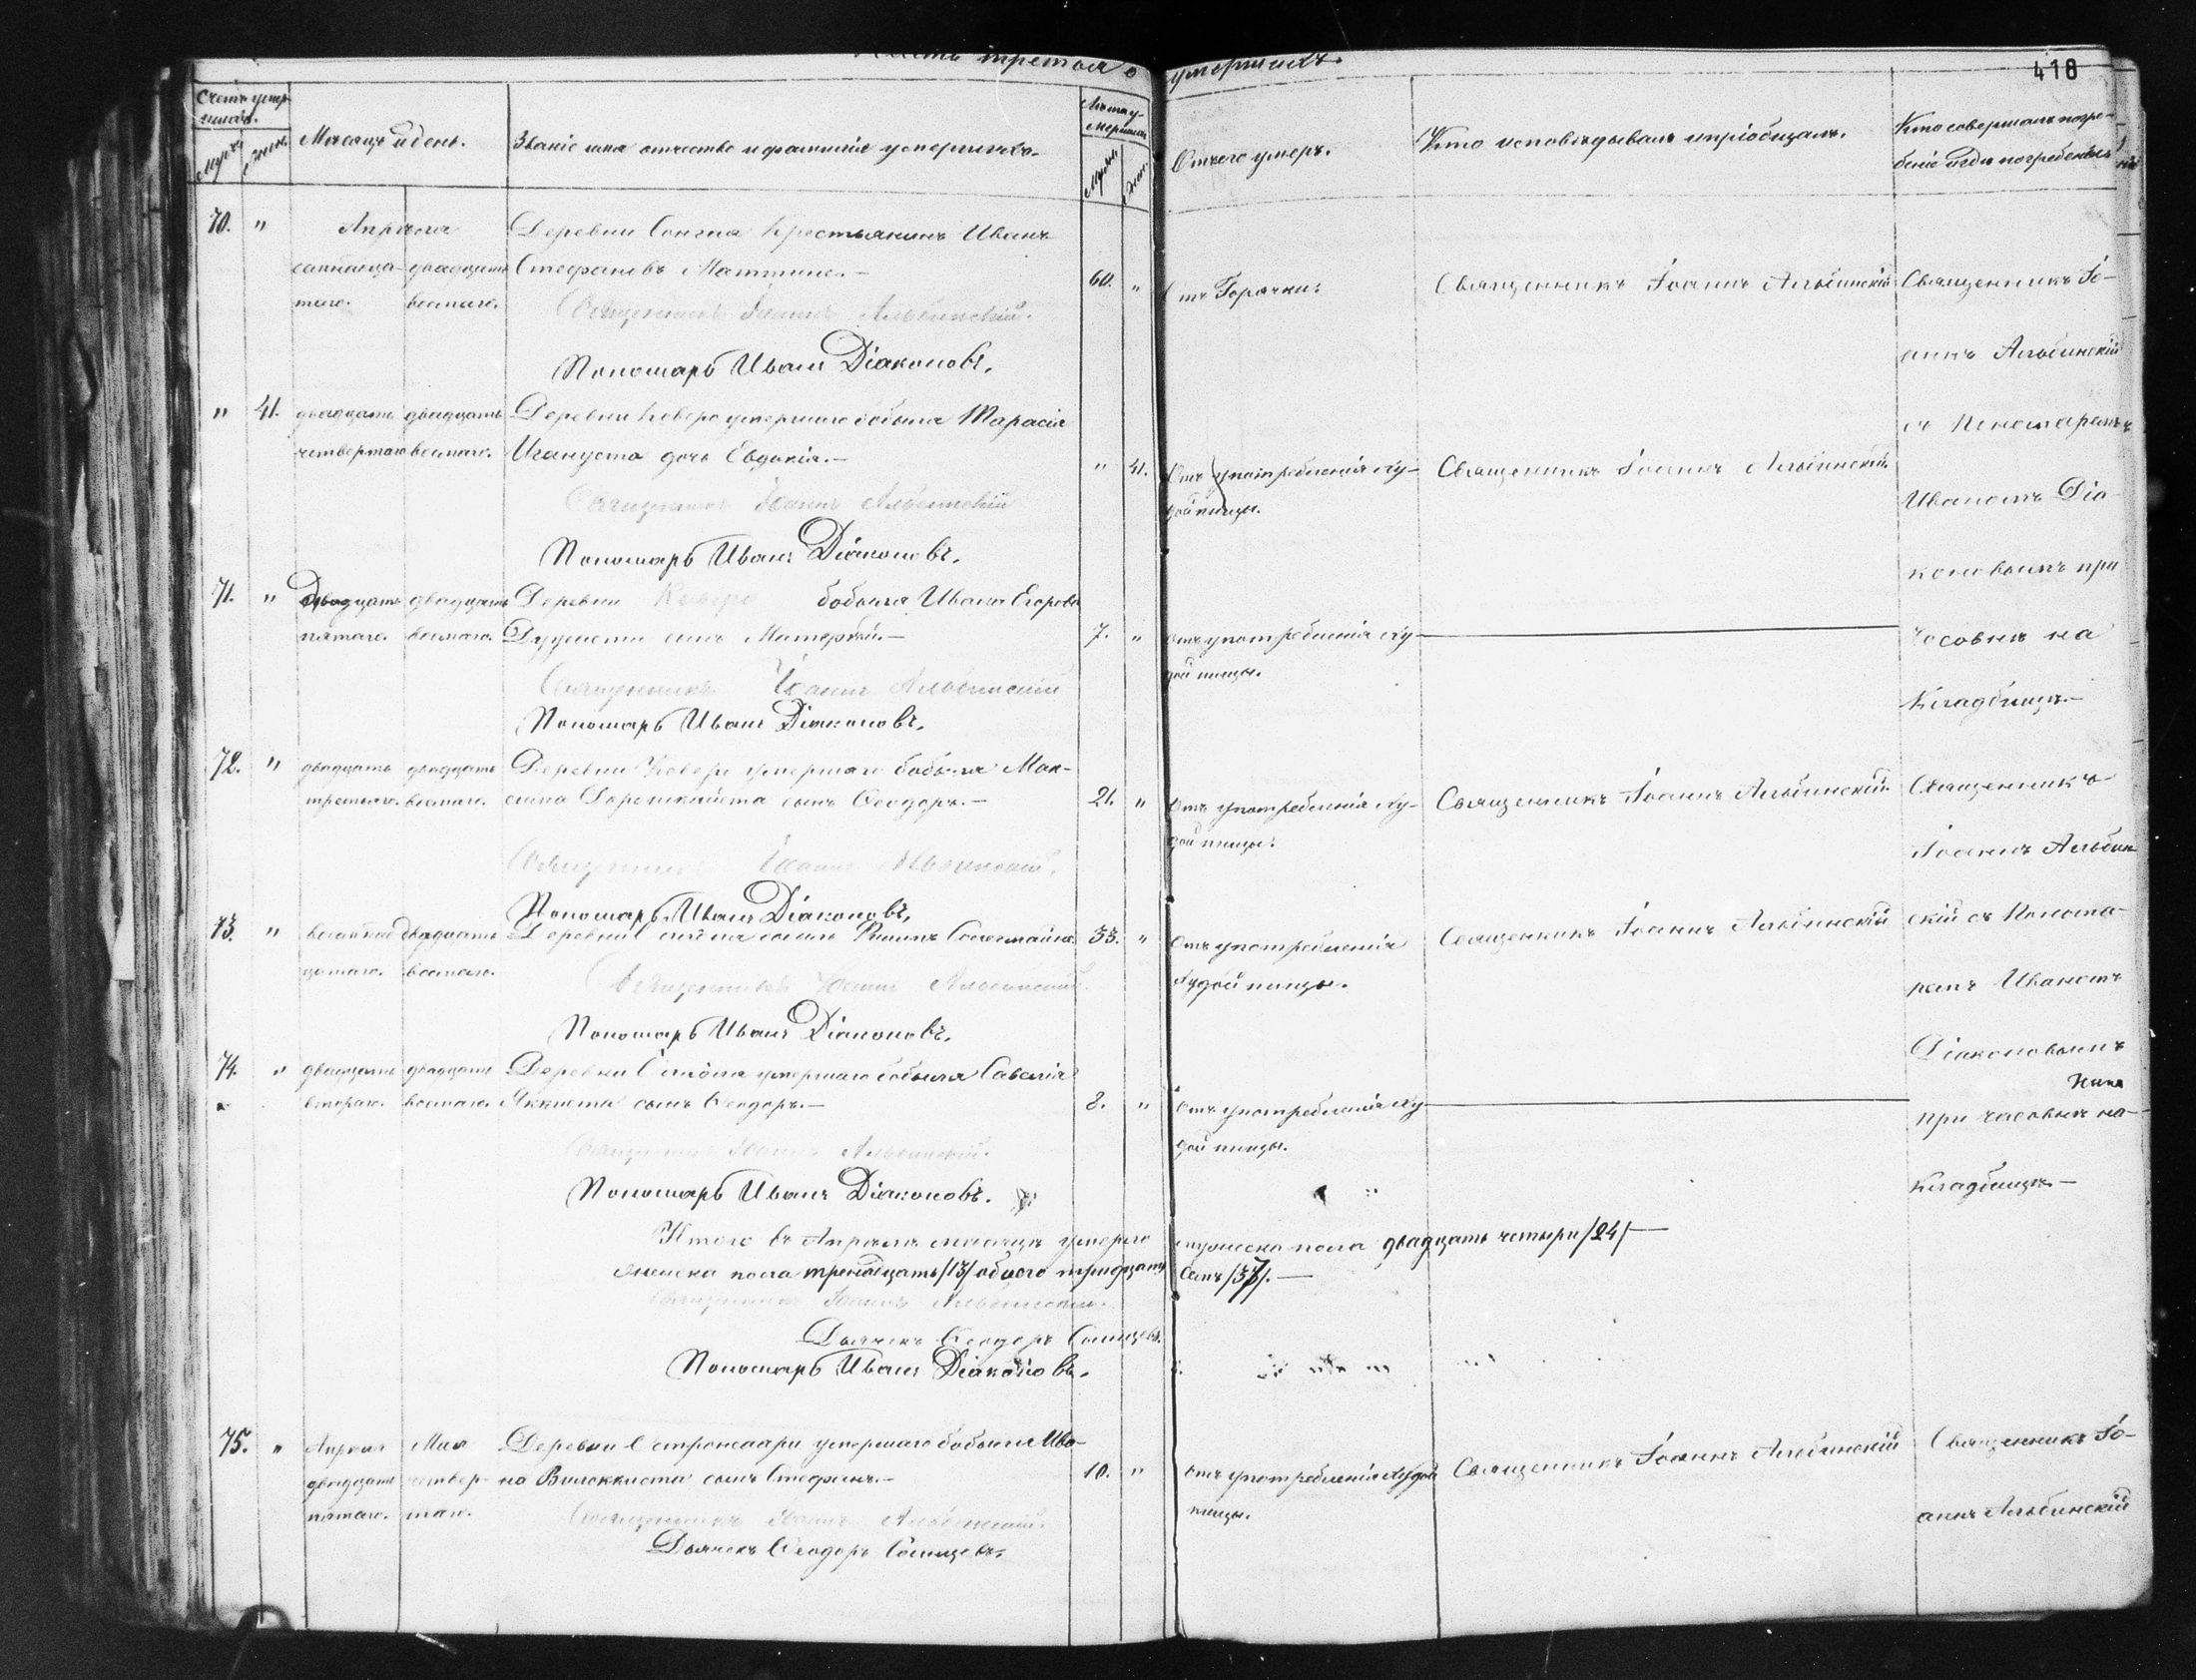 Часть третья о умершихъ.
418
Счетъ умершихъ.
Мужс.
Женс.
Мѣсяцъ и день.
Званіе имя отчество и фамилія умершихъ.
Лѣта умершихъ
Мужск.
Женс.
Отчего умеръ.
Кто исповѣдывалъ и пріобщалъ.
Кто совершалъ погребеніе и гдѣ погребены
70. " Апрѣля Деревни крестьянинъ Иванъ
двадцать Стефановъ 60. "
таго. восьмаго.
Отъ Горячки.
Священникъ Іоаннъ Альбинскій
Священникъ Іо-
аннъ Альбинскій
Священникъ Іоаннъ Альбинскій.
Пономарь Иванъ Діаконовъ.
" 41. двадцать двадцать Деревни Коверо умершаго бобыля Тарасія
четвертаго восьмаго. дочь Евдокія.— " 41.
Отъ употребленія ху-
дой пищи.
Священникъ Іоаннъ Альбинскій
Священникъ Іоаннъ Альбинскій
Пономарь Иванъ Діаконовъ.
съ Пономаремъ
Иваномъ Діа-
коновымъ при
часовнѣ на
Кладбищѣ.—
71. " двадцать двадцать Деревни Коверо бобыля Ивана Егорова
пятаго. восьмаго. сынъ 7. "
отъ употребленія ху-
дой пищи.
Священникъ Іоаннъ Альбинскій
Пономарь Иванъ Діаконовъ.
72. " двадцать двадцать Деревни Коверо умершаго бобыля Мак-
третьяго. восьмаго. сима сынъ Ѳеодоръ.— 21. "
Отъ употребленія ху-
дой пищи.
Священникъ Іоаннъ Альбинскій
Священникъ Іоаннъ Альбинскій.
Пономарь Иванъ Діаконовъ.
Священникъ
Іоаннъ Альбин-
скій съ Понома-
ремъ Иваномъ
Діаконовымъ
при часовнѣ на
Кладбищѣ.—
73. " двадцать Деревни 33. "
восьмаго.
Отъ употребленія
худой пищи.
Священникъ Іоаннъ Альбинскій
Священникъ Іоаннъ Альбинскій.
Пономарь Иванъ Діаконовъ.
74. " двадцать двадцать Деревни умершаго бобыля Савелія
втораго. восьмаго. сынъ Ѳеодоръ.— 8. "
отъ употребленія ху-
дой пищи.
Священникъ Іоаннъ Альбинскій.
Пономарь Иванъ Діаконовъ.
Итого въ Апрѣлѣ мѣсяцѣ умерло мужеска пола двадцать четыре /24/—
женска пола тренадцать /13/ обоего тридцать семь /37/.—
Священникъ Іоаннъ Альбинскій.
Дьячекъ Ѳеодоръ
Пономарь Иванъ Діаконовъ.
75. " Апрѣля Мая Деревни умершаго бобыля Ива-
двадцать четвер- на сынъ Стефанъ.— 10. "
пятаго. таго.
отъ употребленія худой
пищи.
Священникъ Іоаннъ Альбинскій
Священникъ Іо-
аннъ Альбинскій
Священникъ Іоаннъ Альбинскій.
Дьячекъ Ѳеодоръ